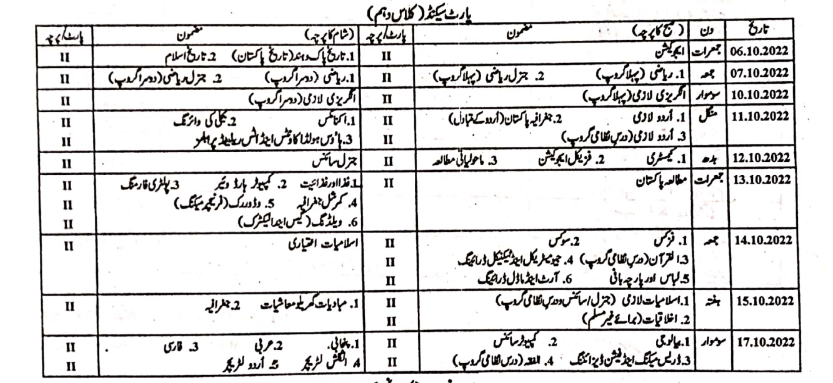 پارٹ سیکنڈ (کلاس دہم)
تاریخ دن (صبح کا پرچہ) مضمون پارٹ/پرچہ (شام کا پرچہ) مضمون پارٹ/پرچہ
06.10.2022 جمعرات ایجوکیشن II 1. تاریخ پاک و ہند (تاریخ پاکستان) 2. تاریخ اسلام II
07.10.2022 جمعہ 1. ریاضی (پہلا گروپ) 2. جنرل ریاضی (پہلا گروپ) II 1. ریاضی (دوسرا گروپ) 2. جنرل ریاضی (دوسرا گروپ) II
10.10.2022 سوموار انگریزی لازمی (پہلا گروپ) II انگریزی لازمی (دوسرا گروپ) II
11.10.2022 منگل 1. اُردو لازمی 2. جغرافیہ پاکستان (اُردو کے متبادل) II 1. اکنامکس 2. بجلی کی وائرنگ II
3. اُردو لازمی (درس نظامی گروپ) 3. ہاؤس ہولڈ اکاؤنٹس اینڈ اٹس ریلیٹڈ پرابلمز
12.10.2022 بدھ 1. کیمسٹری 2. فزیکل ایجوکیشن 3. ماحولیاتی مطالعہ II جنرل سائنس II
13.10.2022 جمعرات مطالعہ پاکستان II 1. غذا اور غذائیت 2. کمپیوٹر ہارڈ وئیر 3. پولٹری فارمنگ II
4. کمرشل جغرافیہ 5. وڈ ورک (فرنیچر میکنگ) II
6. ویلڈنگ (گیس اینڈ الیکٹرک) II
14.10.2022 جمعہ 1. فزکس 2. سوکس II اسلامیات اختیاری II
3. القرآن (درس نظامی گروپ) 4. جیومیٹریکل اینڈ ٹیکنیکل ڈرائینگ II
5. لباس اور پارچہ بانی 6. آرٹ اینڈ ماڈل ڈرائینگ II
15.10.2022 ہفتہ 1. اسلامیات لازمی (جنرل/سائنس و درس نظامی گروپ) II 1. مبادیات گھریلو معاشیات 2. جغرافیہ II
2. اخلاقیات (برائے غیر مسلم) II
17.10.2022 سوموار 1. بیالوجی 2. کمپیوٹر سائنس II 1. پنجابی 2. عربی 3. فارسی II
3. ڈریس میکنگ اینڈ فیشن ڈیزائننگ 4. الفقہ (درس نظامی گروپ) II 4. انگلش لٹریچر 5. اُردو لٹریچر II